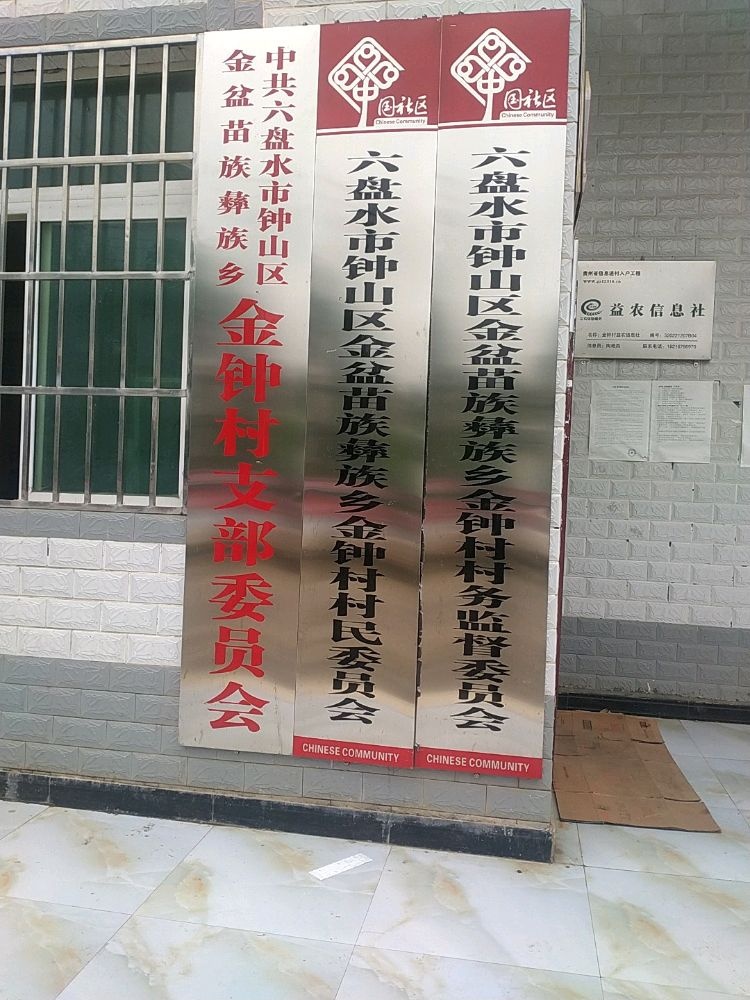 中共六盘水市钟山区
金盆苗族彝族乡
金钟村支部委员会
中国社区
Chinese Community
六盘水市钟山区金盆苗族彝族乡金钟村村民委员会
CHINESE COMMUNITY
中国社区
Chinese Community
六盘水市钟山区金盆苗族彝族乡金钟村村务监督委员会
CHINESE COMMUNITY
贵州省信息进村入户工程
益农信息社
名称：金钟村益农信息社
编号：
信息员：
联系电话：